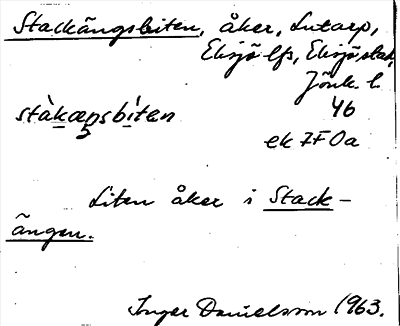 Stackängsbiten, åker, Lutarp,
Eksjö lfs, Eksjö stad,
Jönk. l.
stàkæŋsbi̇̀ten
46
ek 7F0a
Liten åker i Stack-
ängen.
Inger Danielsson 1963.